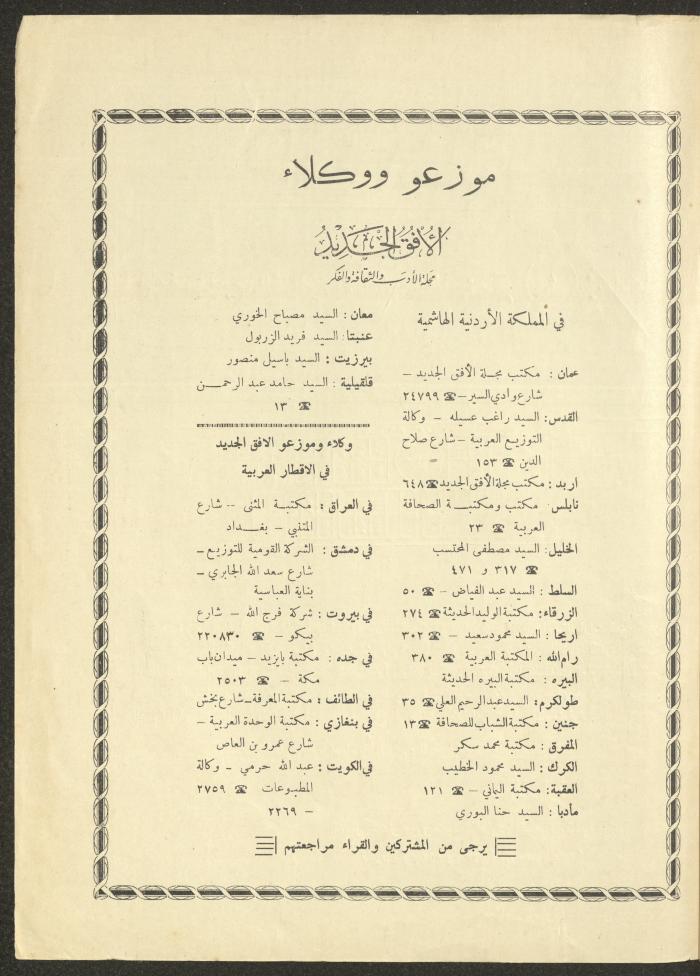 موزعو ووكلاء
الأفق الجديد
مجلة الأدب والثقافة والفكر
في المملكة الأردنية الهاشمية
عمان : مكتب مجلة الأفق الجديد –
شارع وادي السير – ☎ ٢٤٧٩٩
القدس: السيد راغب عسيله – وكالة
التوزيع العربية – شارع صلاح
الدين ☎ ١٥٣
اربد : مكتب مجلة الأفق الجديد ☎ ٦٤٨
نابلس: مكتب ومكتبة الصحافة
العربية ☎ ٢٣
الخليل: السيد مصطفى المحتسب
☎ ٣١٧ و ٤٧١
السلط : السيد عبد الفياض – ☎ ٥٠
الزرقاء: مكتبة الوليد الحديثة ☎ ٢٧٤
اريحا : السيد محمود سعيد – ☎ ٣٠٢
رام الله : المكتبة العربية ☎ ٣٨٠
البيره : مكتبة البيره الحديثة
طولكرم: السيد عبد الرحيم العلي ☎ ٣٥
جنين : مكتبة الشباب للصحافة ☎ ١٣
المفرق : مكتبة محمد سكر
الكرك : السيد محمود الخطيب
العقبة: مكتبة اليماني – ☎ ١٢١
مأدبا : السيد حنا البوري
معان : السيد مصباح الخوري
عنبتا: السيد فريد الزربول
بيرزيت : السيد باسيل منصور
قلقيلية : السيد حامد عبد الرحمن
☎ ١٣
وكلاء وموزعو الافق الجديد
في الاقطار العربية
في العراق : مكتبة المثنى – شارع
المتنبي – بغداد
في دمشق : الشركة القومية للتوزيع –
شارع سعد الله الجابري –
بناية العباسية
في بيروت : شركة فرج الله – شارع
بيكو – ☎ ٢٢٠٨٣٠
في جده : مكتبة بايزيد – ميدان باب
مكة – ☎ ٢٥٠٣
في الطائف : مكتبة المعرفة – شارع بخش
في بنغازي : مكتبة الوحدة العربية –
شارع عمرو بن العاص
في الكويت : عبد الله حرمي – وكالة
المطبوعات ☎ ٢٧٥٩
– ٢٢٦٩
يرجى من المشتركين والقراء مراجعتهم